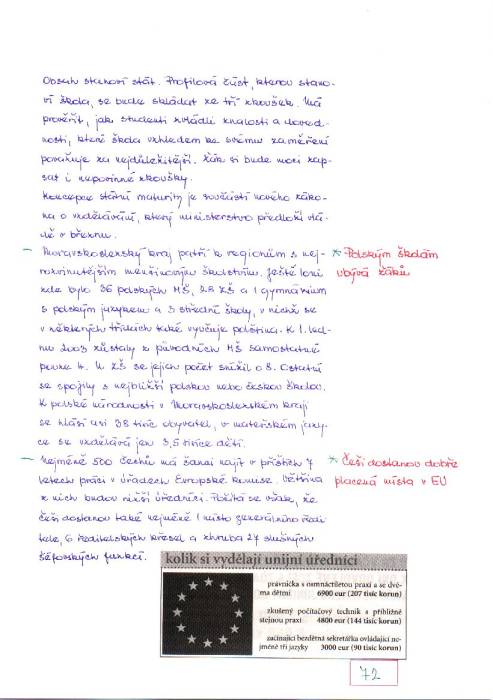 Obsah stanoví stát. Profilová část, kterou stano-
ví škola, se bude skládat ze tří zkoušek. Má
prověřit, jak studenti zvládli znalosti a doved-
nosti, které škola vzhledem ke svému zaměření
považuje za nejdůležitější. Žák si bude moci zap-
sat i nepovinné zkoušky.
Koncepce státní maturity je součástí nového záko-
na o vzdělávání, který ministerstvo předloží vlá-
dě v březnu.
– Moravskoslezský kraj patří k regionům s nej-
rozvinutějším menšinovým školstvím. Ještě loni
zde bylo 36 polských MŠ, 28 ZŠ a 1 gymnázium
s polským jazykem a 3 střední školy, v nichž se
v některých třídách také vyučuje polština. K 1. led-
nu 2003 zůstaly z původních MŠ samostatné
pouze 4. U ZŠ se jejich počet snížil o 8. Ostatní
se spojily s nejbližší polskou nebo českou školou.
K polské národnosti v Moravskoslezském kraji
se hlásí asi 38 tisíc obyvatel, v mateřském jazy-
ce se vzdělává jen 3,5 tisíce dětí.
* Polským školám
ubývá žáků
– Nejméně 500 Čechů má šanci najít v příštích 7
letech práci v úřadech Evropské komise. Většina
z nich budou nižší úředníci. Počítá se však, že
Češi dostanou také nejméně 1 místo generálního ředi
tele, 6 ředitelských křesel a zhruba 27 slušných
šéfovských funkcí.
* Češi dostanou dobře
placená místa v EU
kolik si vydělají unijní úředníci
právnička s osmnáctiletou praxí a se dvě-
ma dětmi 6900 eur (207 tisíc korun)
zkušený počítačový technik s přibližně
stejnou praxí 4800 eur (144 tisíc korun)
začínající bezdětná sekretářka ovládající nej-
méně tři jazyky 3000 eur (90 tisíc korun)
72